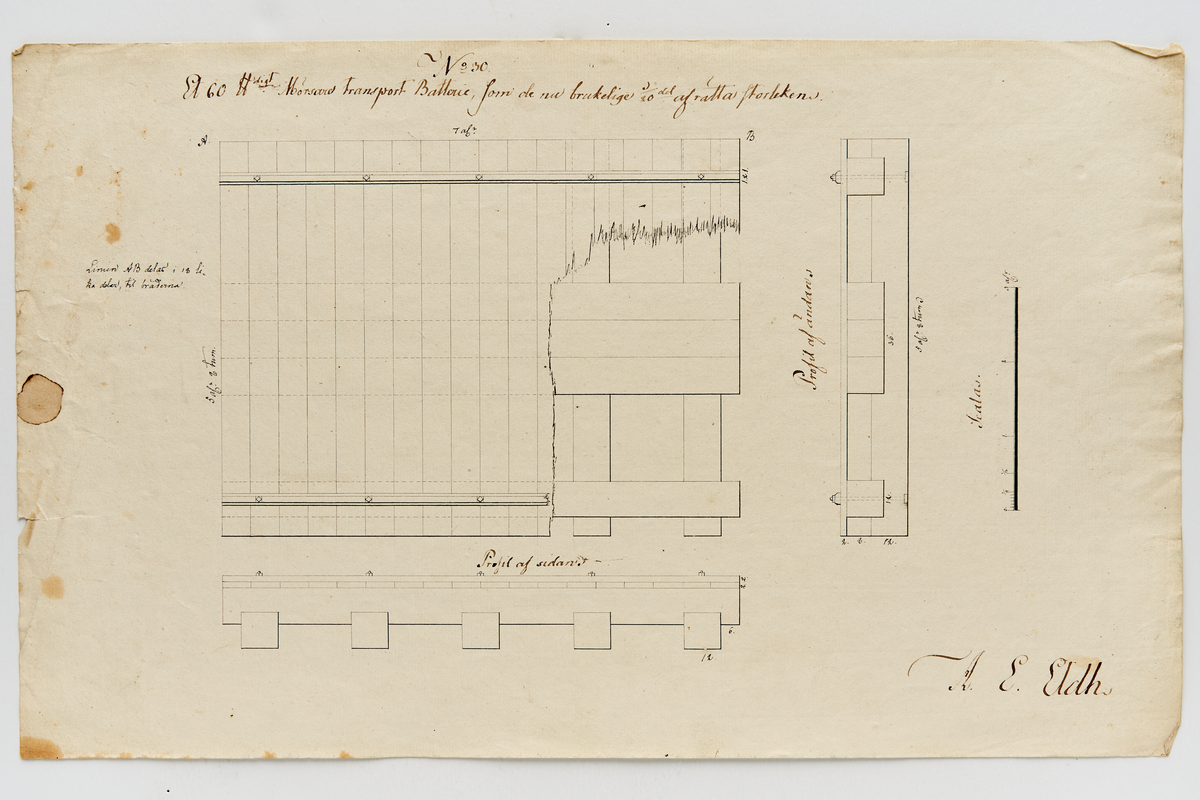 No 30.
Et 60 ℔digt Mörsare transport Batterie, som de nu brukelige 3/20 del af rätta storleken.
A
7 alr
B
12.1
Linien AB delas i 18 li-
ka delar, til bräderna
5 alr 2 tum.
Profil af ändans
36.
5 alr 2 tum
12.
2. 2. 12.
Scalas.
Profil af sidans
2.2
6.
12.
A. E. Eldh